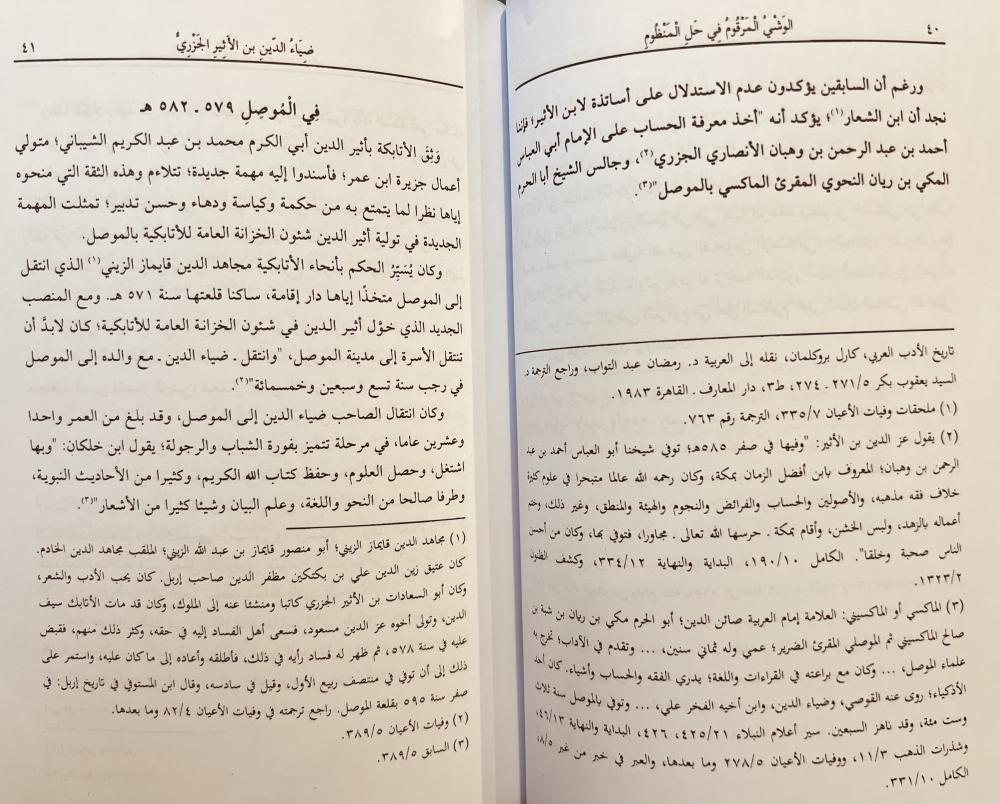 ٤٠
الوَشْيُ الْمَرْقُومُ فِي حَلِ الْمَنْظُومِ
ورغم أن السابقين يؤكدون عدم الاستدلال على أساتذة لابن الأثير؛ فإننا
نجد أن ابن الشعار(١)؛ يؤكد أنه "أخذ معرفة الحساب على الإمام أبي العباس
أحمد بن عبد الرحمن بن وهبان الأنصاري الجزري(٢)، وجالس الشيخ أبا الحرم
المكي بن ريان النحوي المقرئ الماكسي بالموصل"(٣).
تاريخ الأدب العربي، كارل بروكلمان، نقله إلى العربية د. رمضان عبد التواب، وراجع الترجمة د.
السيد يعقوب بكر ٢٧١/٥ ـ ٢٧٤، ط٣، دار المعارف ـ القاهرة ١٩٨٣.
(١) ملحقات وفيات الأعيان ٣٣٥/٧، الترجمة رقم ٧٦٣.
(٢) يقول عز الدين بن الأثير: "وفيها في صفر ٥٨٥هـ؛ توفي شيخنا أبو العباس أحمد بن عبد
الرحمن بن وهبان؛ المعروف بابن أفضل الزمان بمكة، وكان رحمه الله عالما متبحرا في علوم كثيرة
خلاف فقه مذهبه، والأصولين والحساب والفرائض والنجوم والهيئة والمنطق، وغير ذلك، وختم
أعماله بالزهد، ولبس الخشن، وأقام بمكة ـ حرسها الله تعالى ـ مجاورا، فتوفي بها، وكان من أحسن
الناس صحبة وخلقا". الكامل ١٩٠/١٠، البداية والنهاية ٣٣٤/١٢، وكشف الظنون
١٣٢٣/٢.
(٣) الماكسي أو الماكسيني: العلامة إمام العربية صائن الدين؛ أبو الحرم مكي بن ريان بن شبة بن
صالح الماكسيني ثم الموصلي المقرئ الضرير؛ عمي وله ثماني سنين، ... وتقدم في الآداب؛ تخرج به
علماء الموصل، ... وكان مع براعته في القراءات واللغة؛ يدري الفقه والحساب وأشياء. كان أحد
الأذكياء؛ روى عنه القوصي، وضياء الدين، وابن أخيه الفخر علي، ... وتوفي بالموصل سنة ثلاث
وست مئة، وقد ناهز السبعين. سير أعلام النبلاء ٤٢٥/٢١، ٤٢٦، البداية والنهاية ٤٦/١٣،
وشذرات الذهب ١١/٣، ووفيات الأعيان ٢٧٨/٥ وما بعدها، والعبر في خبر من غبر ٨/٥،
الكامل ٣٣١/١٠.
ضِيَاءُ الدِّينِ بن الأَثِيرِ الجَزْرِيُّ
٤١
فِي الْمُوصِلِ ٥٧٩ ـ ٥٨٢ هـ
وَثِقَ الأتابكة بأثير الدين أبي الكرم محمد بن عبد الكريم الشيباني؛ متولي
أعمال جزيرة ابن عمر؛ فأسندوا إليه مهمة جديدة؛ تتلاءم وهذه الثقة التي منحوه
إياها نظرا لما يتمتع به من حكمة وكياسة ودهاء وحسن تدبير؛ تمثلت المهمة
الجديدة في تولية أثير الدين شئون الخزانة العامة للأتابكية بالموصل.
وكان يُسَيِّرُ الحكم بأنحاء الأتابكية مجاهد الدين قايماز الزيني(١) الذي انتقل
إلى الموصل متخذًا إياها دار إقامة، ساكنا قلعتها سنة ٥٧١ هـ. ومع المنصب
الجديد الذي خوِّل أثير الدين في شئون الخزانة العامة للأتابكية؛ كان لابدَّ أن
تنتقل الأسرة إلى مدينة الموصل، "وانتقل ـ ضياء الدين ـ مع والده إلى الموصل
في رجب سنة تسع وسبعين وخمسمائة"(٢).
وكان انتقال الصاحب ضياء الدين إلى الموصل، وقد بلغ من العمر واحدا
وعشرين عاما، في مرحلة تتميز بفورة الشباب والرجولة؛ يقول ابن خلكان: "وبها
اشتغل، وحصل العلوم، وحفظ كتاب الله الكريم، وكثيرا من الأحاديث النبوية،
وطرفا صالحا من النحو واللغة، وعلم البيان وشيئا كثيرا من الأشعار"(٣).
(١) مجاهد الدين قايماز الزيني؛ أبو منصور قايماز بن عبد الله الزيني؛ الملقب مجاهد الدين الخادم.
كان عتيق زين الدين علي بن بكتكين مظفر الدين صاحب إربل. كان يحب الأدب والشعر،
وكان أبو السعادات بن الأثير الجزري كاتبا ومنشئا عنه إلى الملوك، وكان قد مات الأتابك سيف
الدين، وتولى أخوه عز الدين مسعود، فسعى أهل الفساد إليه في حقه، وكثر ذلك منهم، فقبض
عليه في سنة ٥٧٨، ثم ظهر له فساد رأيه في ذلك، فأطلقه وأعاده إلى ما كان عليه، واستمر على
ذلك إلى أن توفي في منتصف ربيع الأول، وقيل في سادسه، وقال ابن المستوفي في تاريخ إربل: في
صفر سنة ٥٩٥ بقلعة الموصل. راجع ترجمته في وفيات الأعيان ٨٢/٤ وما بعدها.
(٢) وفيات الأعيان ٣٨٩/٥.
(٣) السابق ٣٨٩/٥.